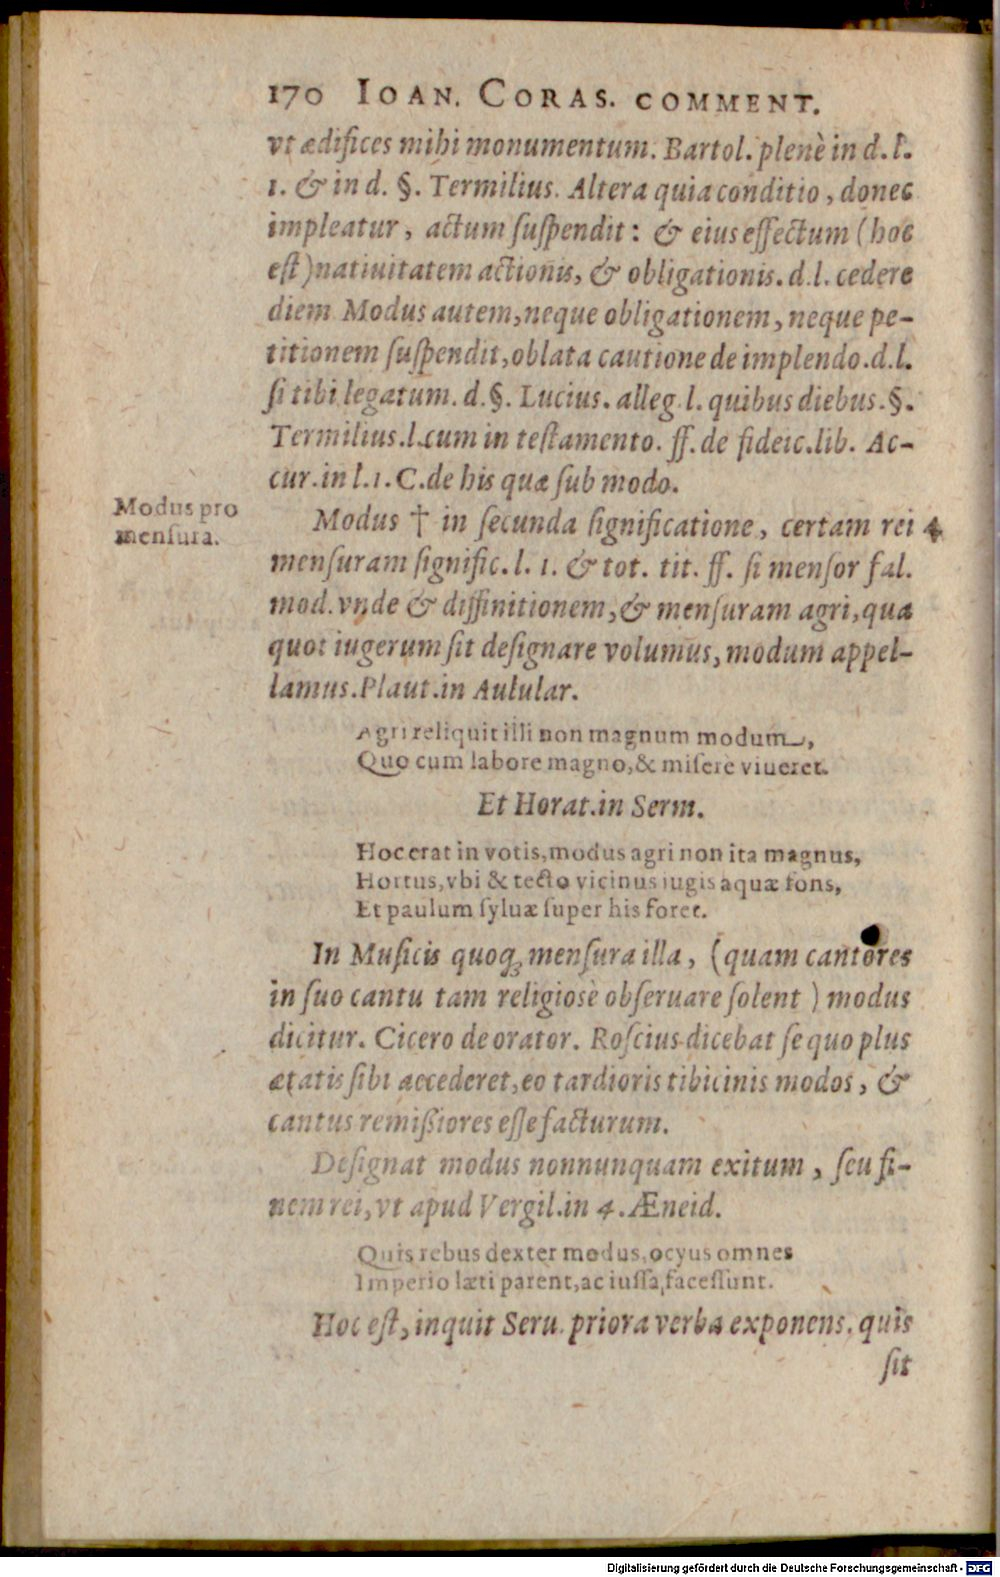 170 IOAN. CORAS. COMMENT.
vt ædifices mihi monumentum. Bartol. plenè in d. l.
1. & in d. §. Termilius. Altera quia conditio, donec
impleatur, actum ſuſpendit: & eius effectum (hoc
eſt) natiuitatem actionis, & obligationis. d. l. cedere
diem. Modus autem, neque obligationem, neque pe-
titionem ſuſpendit, oblata cautione de implendo. d. l.
ſi tibi legatum. d. §. Lucius. alleg. l. quibus diebus. §.
Termilius. l. cum in teſtamento. ff. de fideic. lib. Ac-
cur. in l. 1. C. de his quæ ſub modo.
Modus pro
menſura.
Modus † in ſecunda ſignificatione, certam rei 4
menſuram ſignific. l. 1. & tot. tit. ff. ſi menſor fal.
mod. vnde & diffinitionem, & menſuram agri, qua
quot iugerum ſit deſignare volumus, modum appel-
lamus. Plaut. in Aulular.
Agri reliquit illi non magnum modum,
Quo cum labore magno, & miſere viueret.
Et Horat. in Serm.
Hoc erat in votis, modus agri non ita magnus,
Hortus, vbi & tecto vicinus iugis aquæ fons,
Et paulum ſyluæ ſuper his foret.
In Muſicis quoq; menſura illa, (quam cantores
in ſuo cantu tam religioſè obſeruare ſolent) modus
dicitur. Cicero de orator. Roſcius dicebat ſe quo plus
ætatis ſibi accederet, eo tardioris tibicinis modos, &
cantus remißiores eſſe facturum.
Deſignat modus nonnunquam exitum, ſeu fi-
nem rei, vt apud Vergil. in 4. Æneid.
Quis rebus dexter modus, ocyus omnes
Imperio læti parent, ac iuſſa faceſſunt.
Hoc eſt, inquit Seru. priora verba exponens, quis
ſit
Digitalisierung gefördert durch die Deutsche Forschungsgemeinschaft - DFG